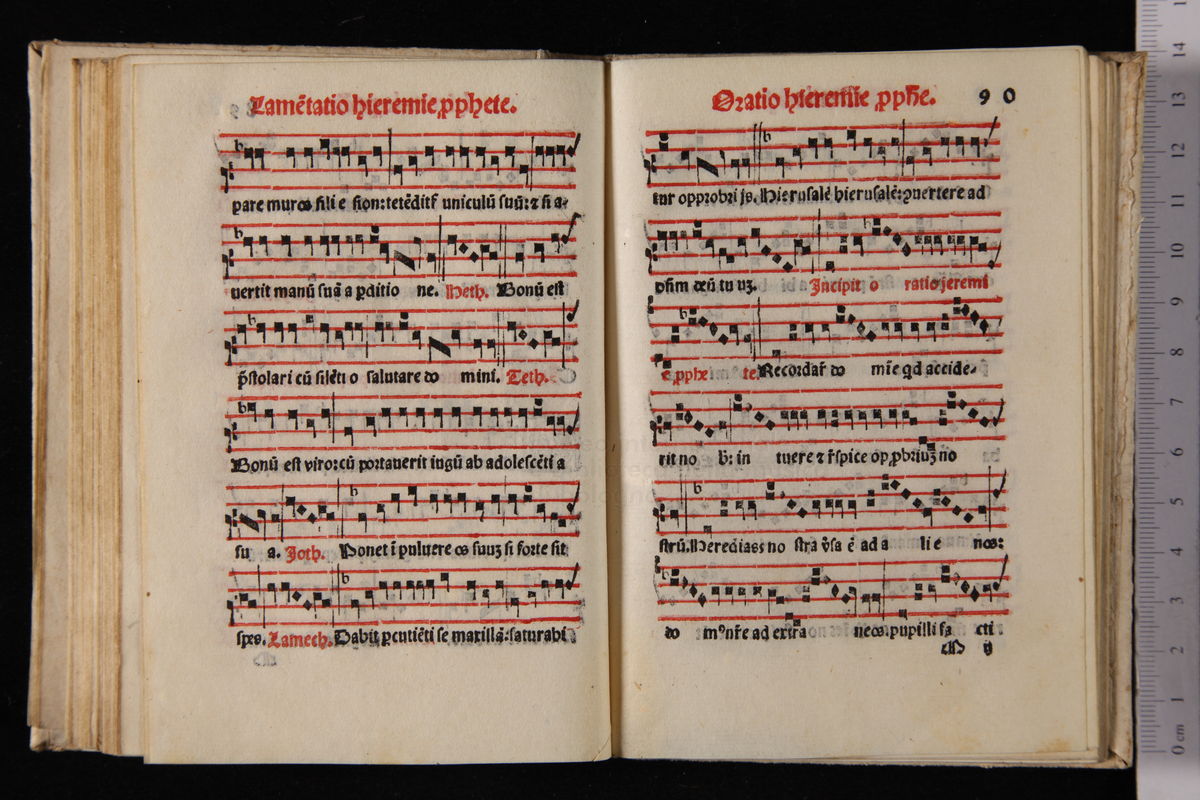 Lamẽtatio hieremie ꝓphete.
pare muros filie sion: tetẽdit funiculũ suũ: ⁊ nõ a-
uertit manũ suã a ꝑditio ne. Heth. Bonũ est
p̃stolari cũ silẽtio salutare do mini. Teth.
Bonũ est viro: cũ portauerit iugũ ab adolescẽti a
su a. Joth. Ponet ĩ puluere os suuꝫ si forte sit
spes. Lamech. Dabit ꝑcutiẽti se maxillã: saturabi
Oratio hieremie ꝓphe. 90
tur opprobrijs. Hierusalẽ hierusalẽ: ꝯuertere ad
dñm deũ tuuꝫ. Incipit o ratio jeremi
e ꝓphe te. Recordar̃ do mĩe qd accide-
rit no b: in tuere ⁊ r̃spice opꝓbriuꝫ no
strũ. Hereditas no stra v̄sa ẽ ad a lie nos:
do mꝰ nr̃e ad extra neos. pupilli fa cti
M ij
1
2
3
4
5
6
7
8
9
10
11
12
13
14
0 cm